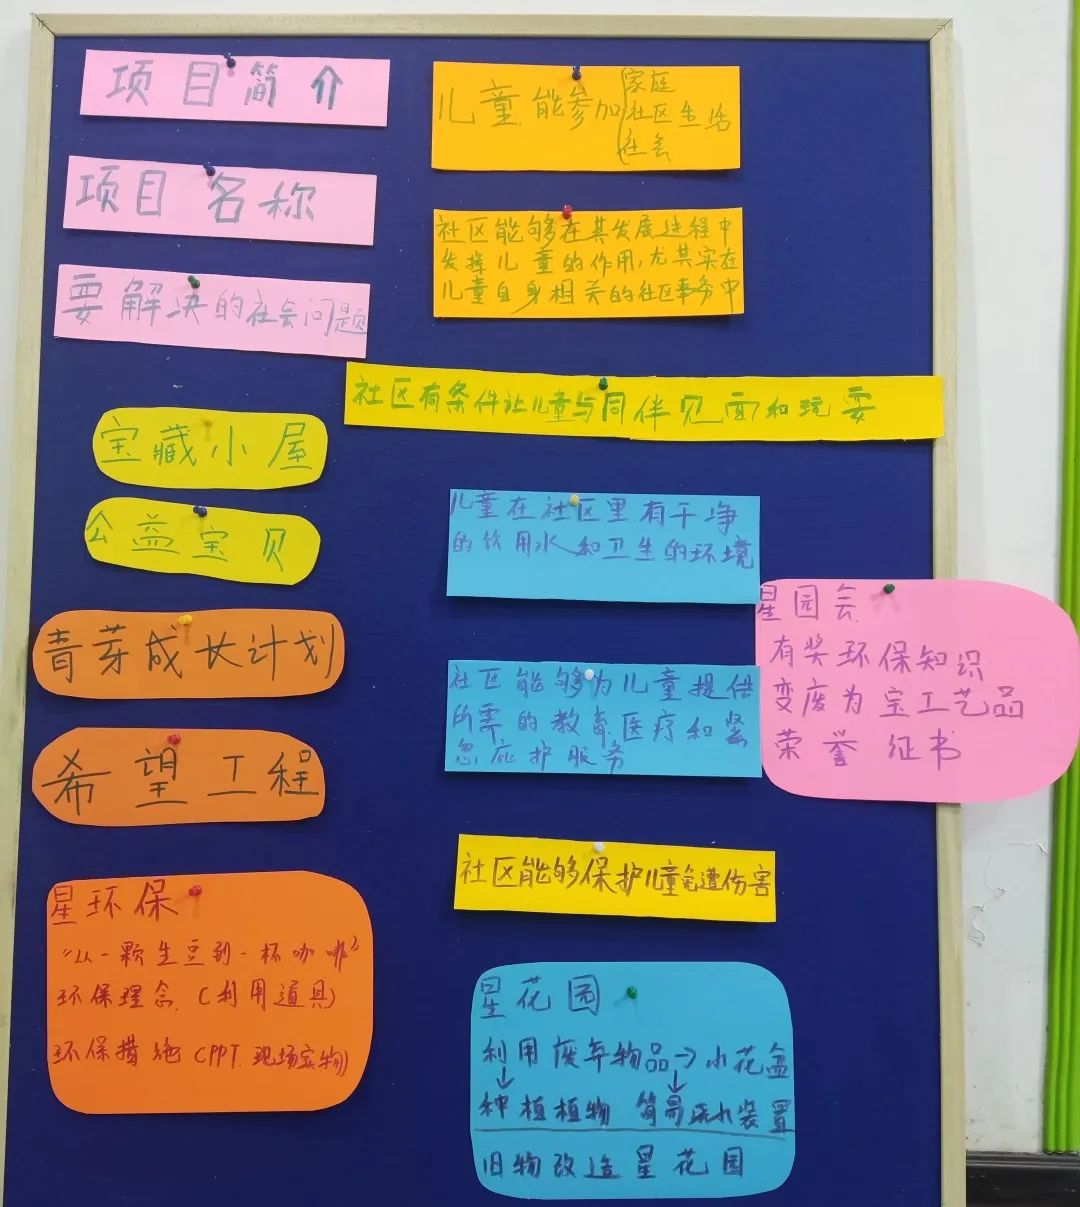 项目简介
项目名称
要解决的社会问题
宝藏小屋
公益宝贝
青芽成长计划
希望工程
星环保
“从一颗生豆到一杯咖啡”
环保理念(利用道具)
环保措施(PPT.现场实物)
儿童能参加
家庭
社区生活
社会
社区能够在其发展进程中
发挥儿童的作用,尤其实在
儿童自身相关的社区事务中
社区有条件让儿童与同伴见面和玩耍
儿童在社区里有干净
的饮用水和卫生的环境
社区能够为儿童提供
所需的教育.医疗和紧
急应护服务
社区能够保护儿童免遭伤害
星园会
有奖环保知识
变废为宝工艺品
荣誉证书
星花园
利用废弃物品→小花盆
种植植物 简易浇水装置
旧物改造星花园